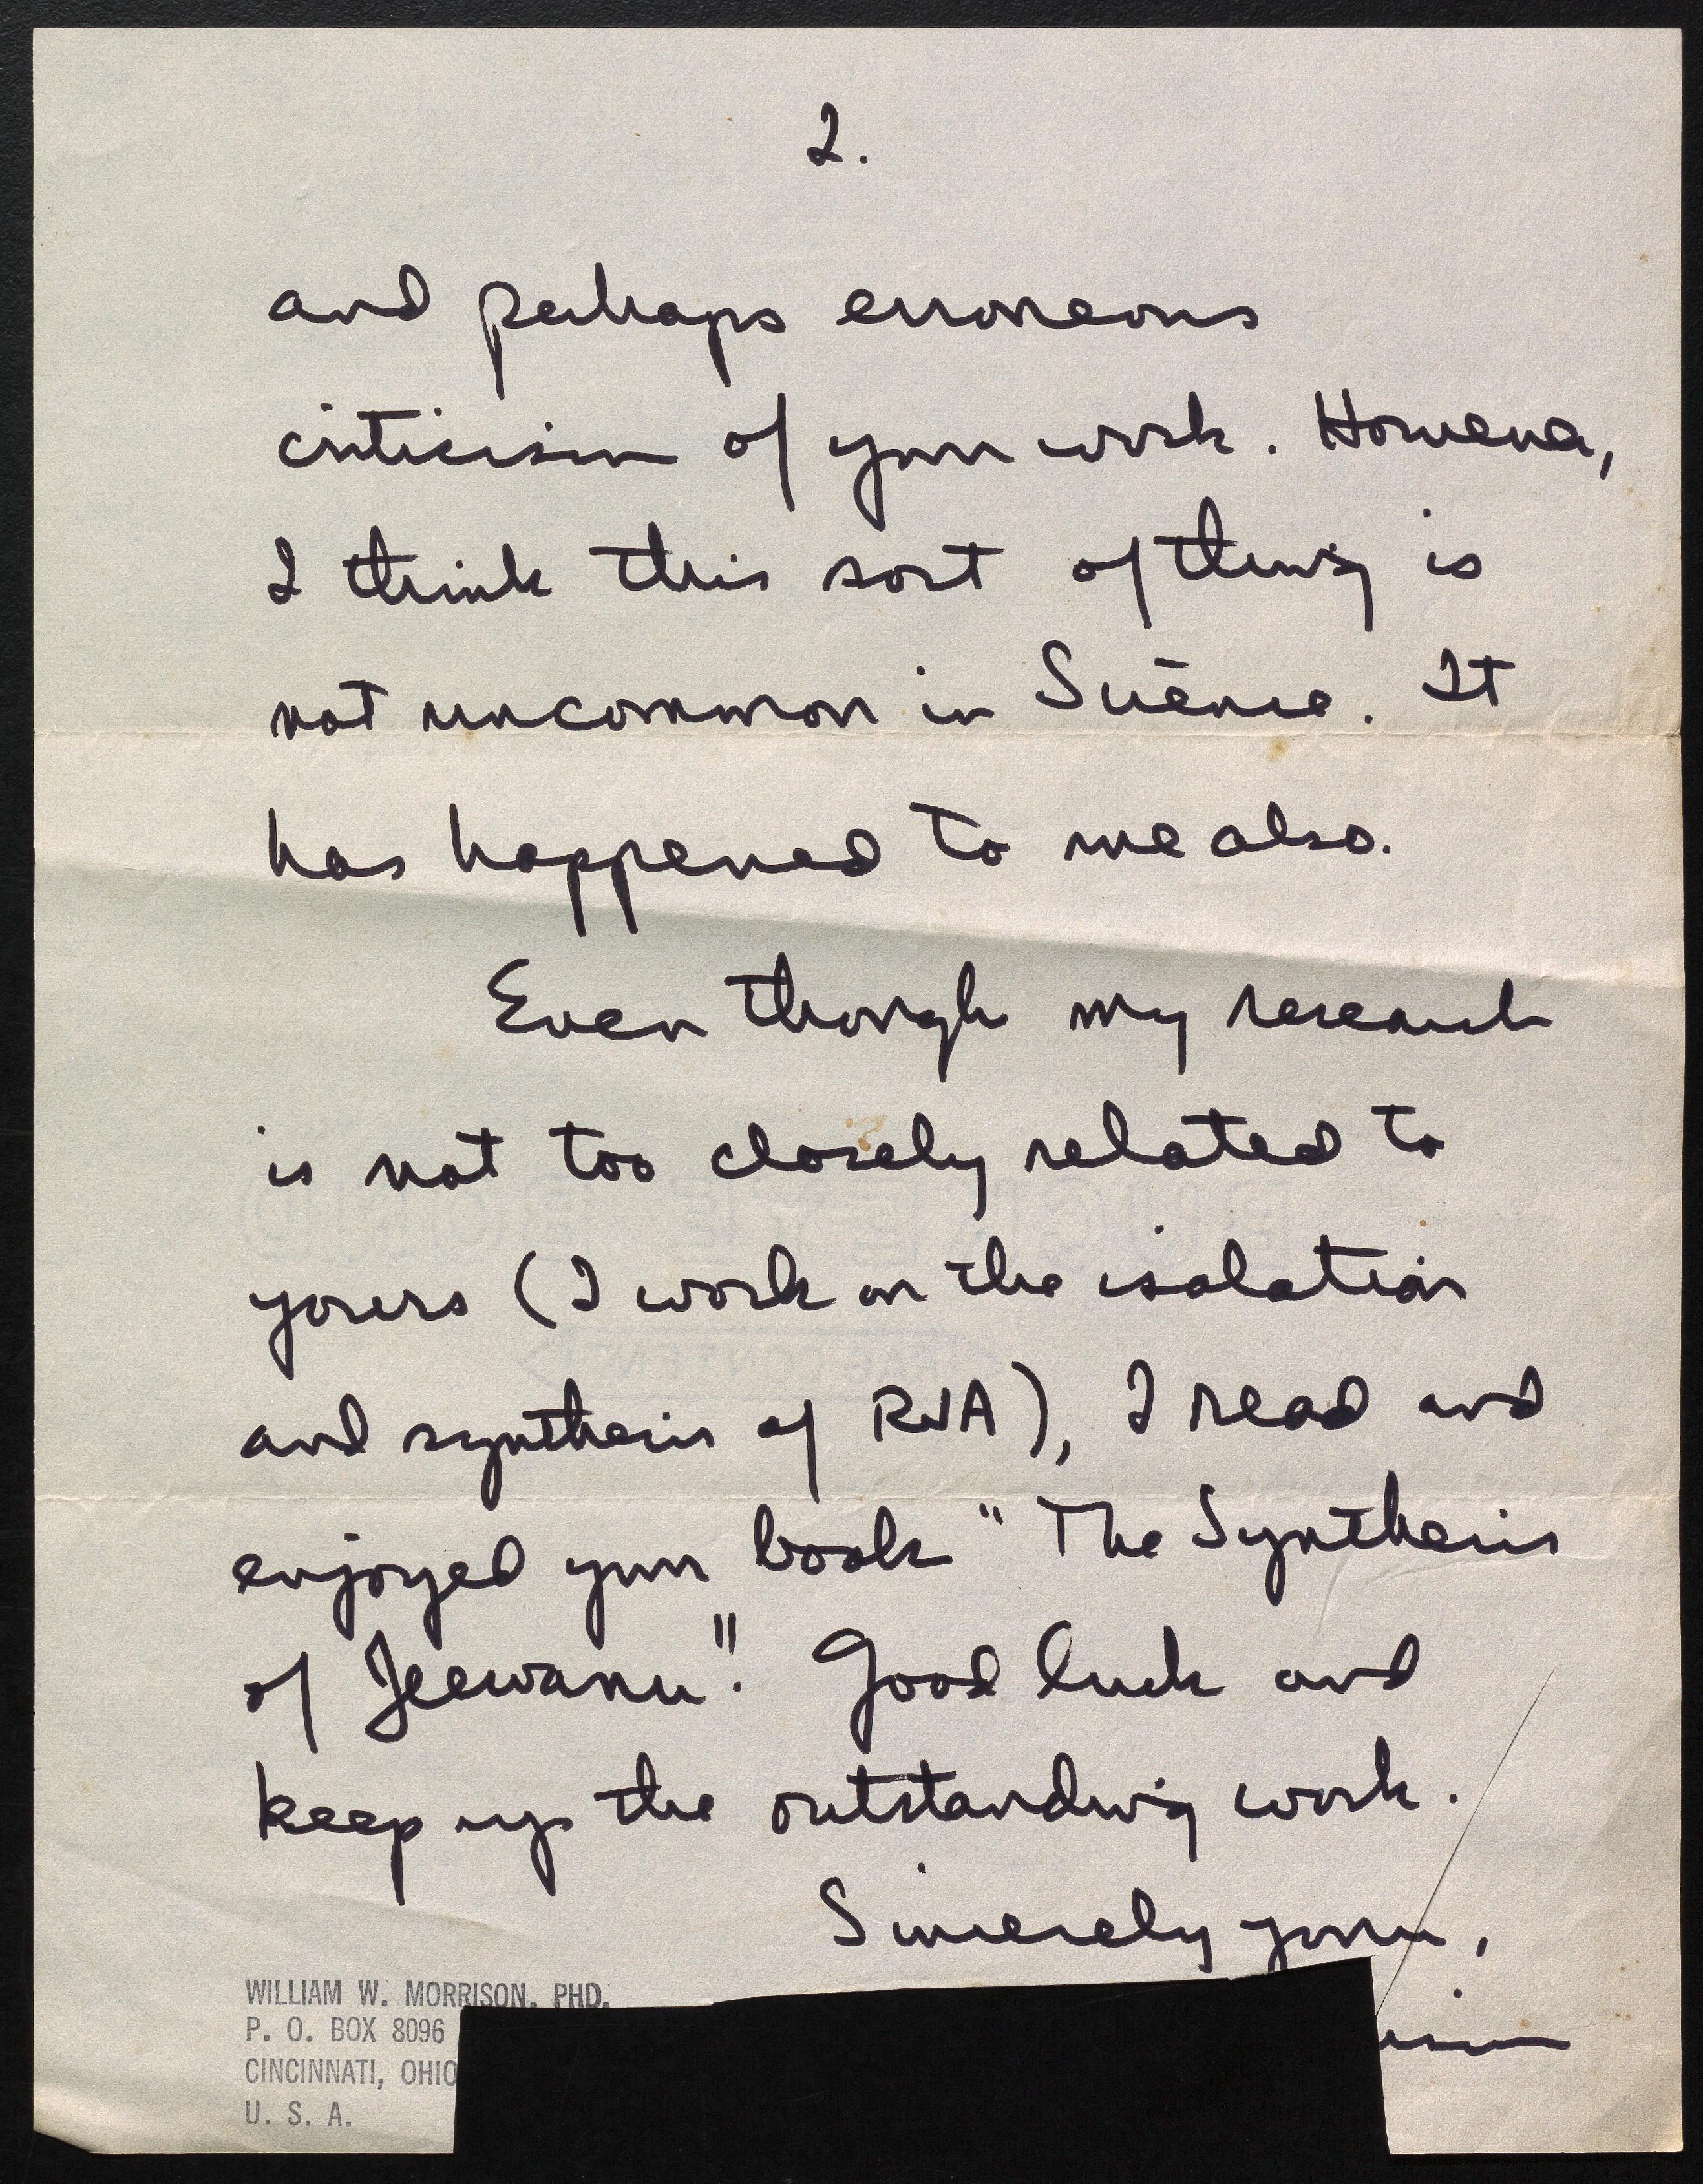 2.
and perhaps erroneous
criticism of your work. However,
I think this sort of thing is
not uncommon in Science. It
has happened to me also.
Even though my research
is not too closely related to
yours (I work on the isolation
and synthesis of RNA), I read and
enjoyed your book "The Synthesis
of Jeewanu". Good luck and
keep up the outstanding work.
Sincerely yours,
WILLIAM W. MORRISON, PHD.
P. O. BOX 8096
CINCINNATI, OHIO
U. S. A.
BUCKEYE BOND
RAG CONTENT